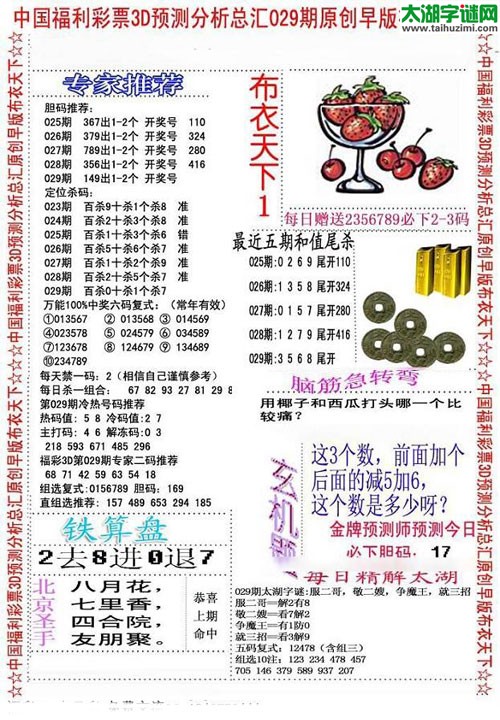 中国福利彩票3D预测分析总汇029期原创早版
太湖字谜网
www.taihuzimi.com
☆☆中国福利彩票3D预测分析总汇原创早版布衣天下☆☆
专家推荐
胆码推荐:
025期 367出1-2个 开奖号 110
026期 379出1-2个 开奖号 324
027期 789出1-2个 开奖号 280
028期 356出1-2个 开奖号 416
029期 149出1-2个 开奖号
定位杀码:
023期 百杀9十杀1个杀8 准
024期 百杀0十杀7个杀2 准
025期 百杀3十杀1个杀6 错
026期 百杀6十杀4个杀7 准
027期 百杀5十杀6个杀9 准
028期 百杀2十杀5个杀7 准
029期 百杀0十杀1个杀7
万能100%中奖六码复式: (常年有效)
①013567 ②013568 ③014569
④023578 ⑤024579 ⑥034589
⑦123678 ⑧124679 ⑨134689
⑩234789
每天禁一码: 2 (相信自己谨慎参考)
每日杀一组合: 67 82 93 27 81 29 8
第029期冷热号码推荐
热码值: 5 8 冷码值: 2 7
主打码: 4 6 解冻码: 0 3
218 593 671 485 296
福彩3D第029期专家二码推荐
68 71 42 59 63 54 18
组选复式: 0156789 胆码: 169
直组选推荐: 157 489 653 294 185
铁算盘
2去8进0退7
北京圣手
八月花,
七里香,
四合院,
友朋聚。
恭喜
上期
命中
布衣天下1
每日赠送2356789必下2-3码
最近五期和值尾杀
025期: 0 2 6 9 尾开110
026期: 1 3 5 8 尾开324
027期: 0 1 5 7 尾开280
028期: 1 2 7 9 尾开416
029期: 3 5 6 8 尾开
脑筋急转弯
用椰子和西瓜打头哪一个比
较痛?
玄机
这3个数, 前面加个
后面的减5加6,
这个数是多少呀?
金牌预测师预测今日
必下胆码, 17
每日精解太湖
029期太湖字谜: 服二哥, 敬二嫂, 争魔王, 就三招
服二哥==解2有8
敬二嫂==看7解2
争魔王==有1防0
就三招==看3解9
五码复式: 12478 (含组三)
组选10注: 123 234 478 457
705 146 379 589 937 207
☆☆中国福利彩票3D预测分析总汇原创早版布衣天下☆☆